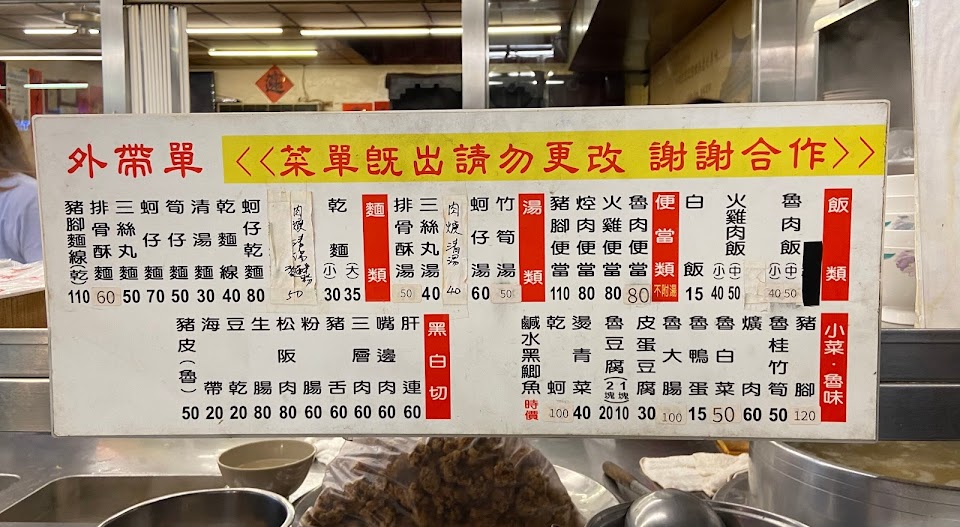 外帶單 <<菜單既出請勿更改 謝謝合作>>
飯類
魯肉飯 小 40 中 50
火雞肉飯 小 40 中 50
白飯 15
便當類 不附湯
魯肉便當 80
火雞便當 80
焢肉便當 80
豬腳便當 110
湯類
竹筍湯 50
蚵仔湯 60
肉焿清湯 40
三絲丸湯 40
排骨酥湯 50
麵類
乾麵 小 30 大 35
肉焿清湯 50
蚵仔乾麵 80
乾麵線 40
清湯麵 30
筍仔麵 50
蚵仔麵 70
三絲丸麵 50
排骨酥麵 60
豬腳麵線(乾) 110
小菜・魯味
豬腳 120
魯桂竹筍 50
爌肉 60
魯白菜 50
魯鴨蛋 15
魯大腸 100
皮蛋豆腐 30
魯豆腐 2塊 20 1塊 10
燙青菜 40
乾蚵 100
鹹水黑鯽魚 時價
黑白切
肝連 60
嘴邊肉 60
三層肉 60
豬舌 60
粉腸 60
松阪肉 80
生腸 80
豆乾 20
海帶 20
豬皮(魯) 50